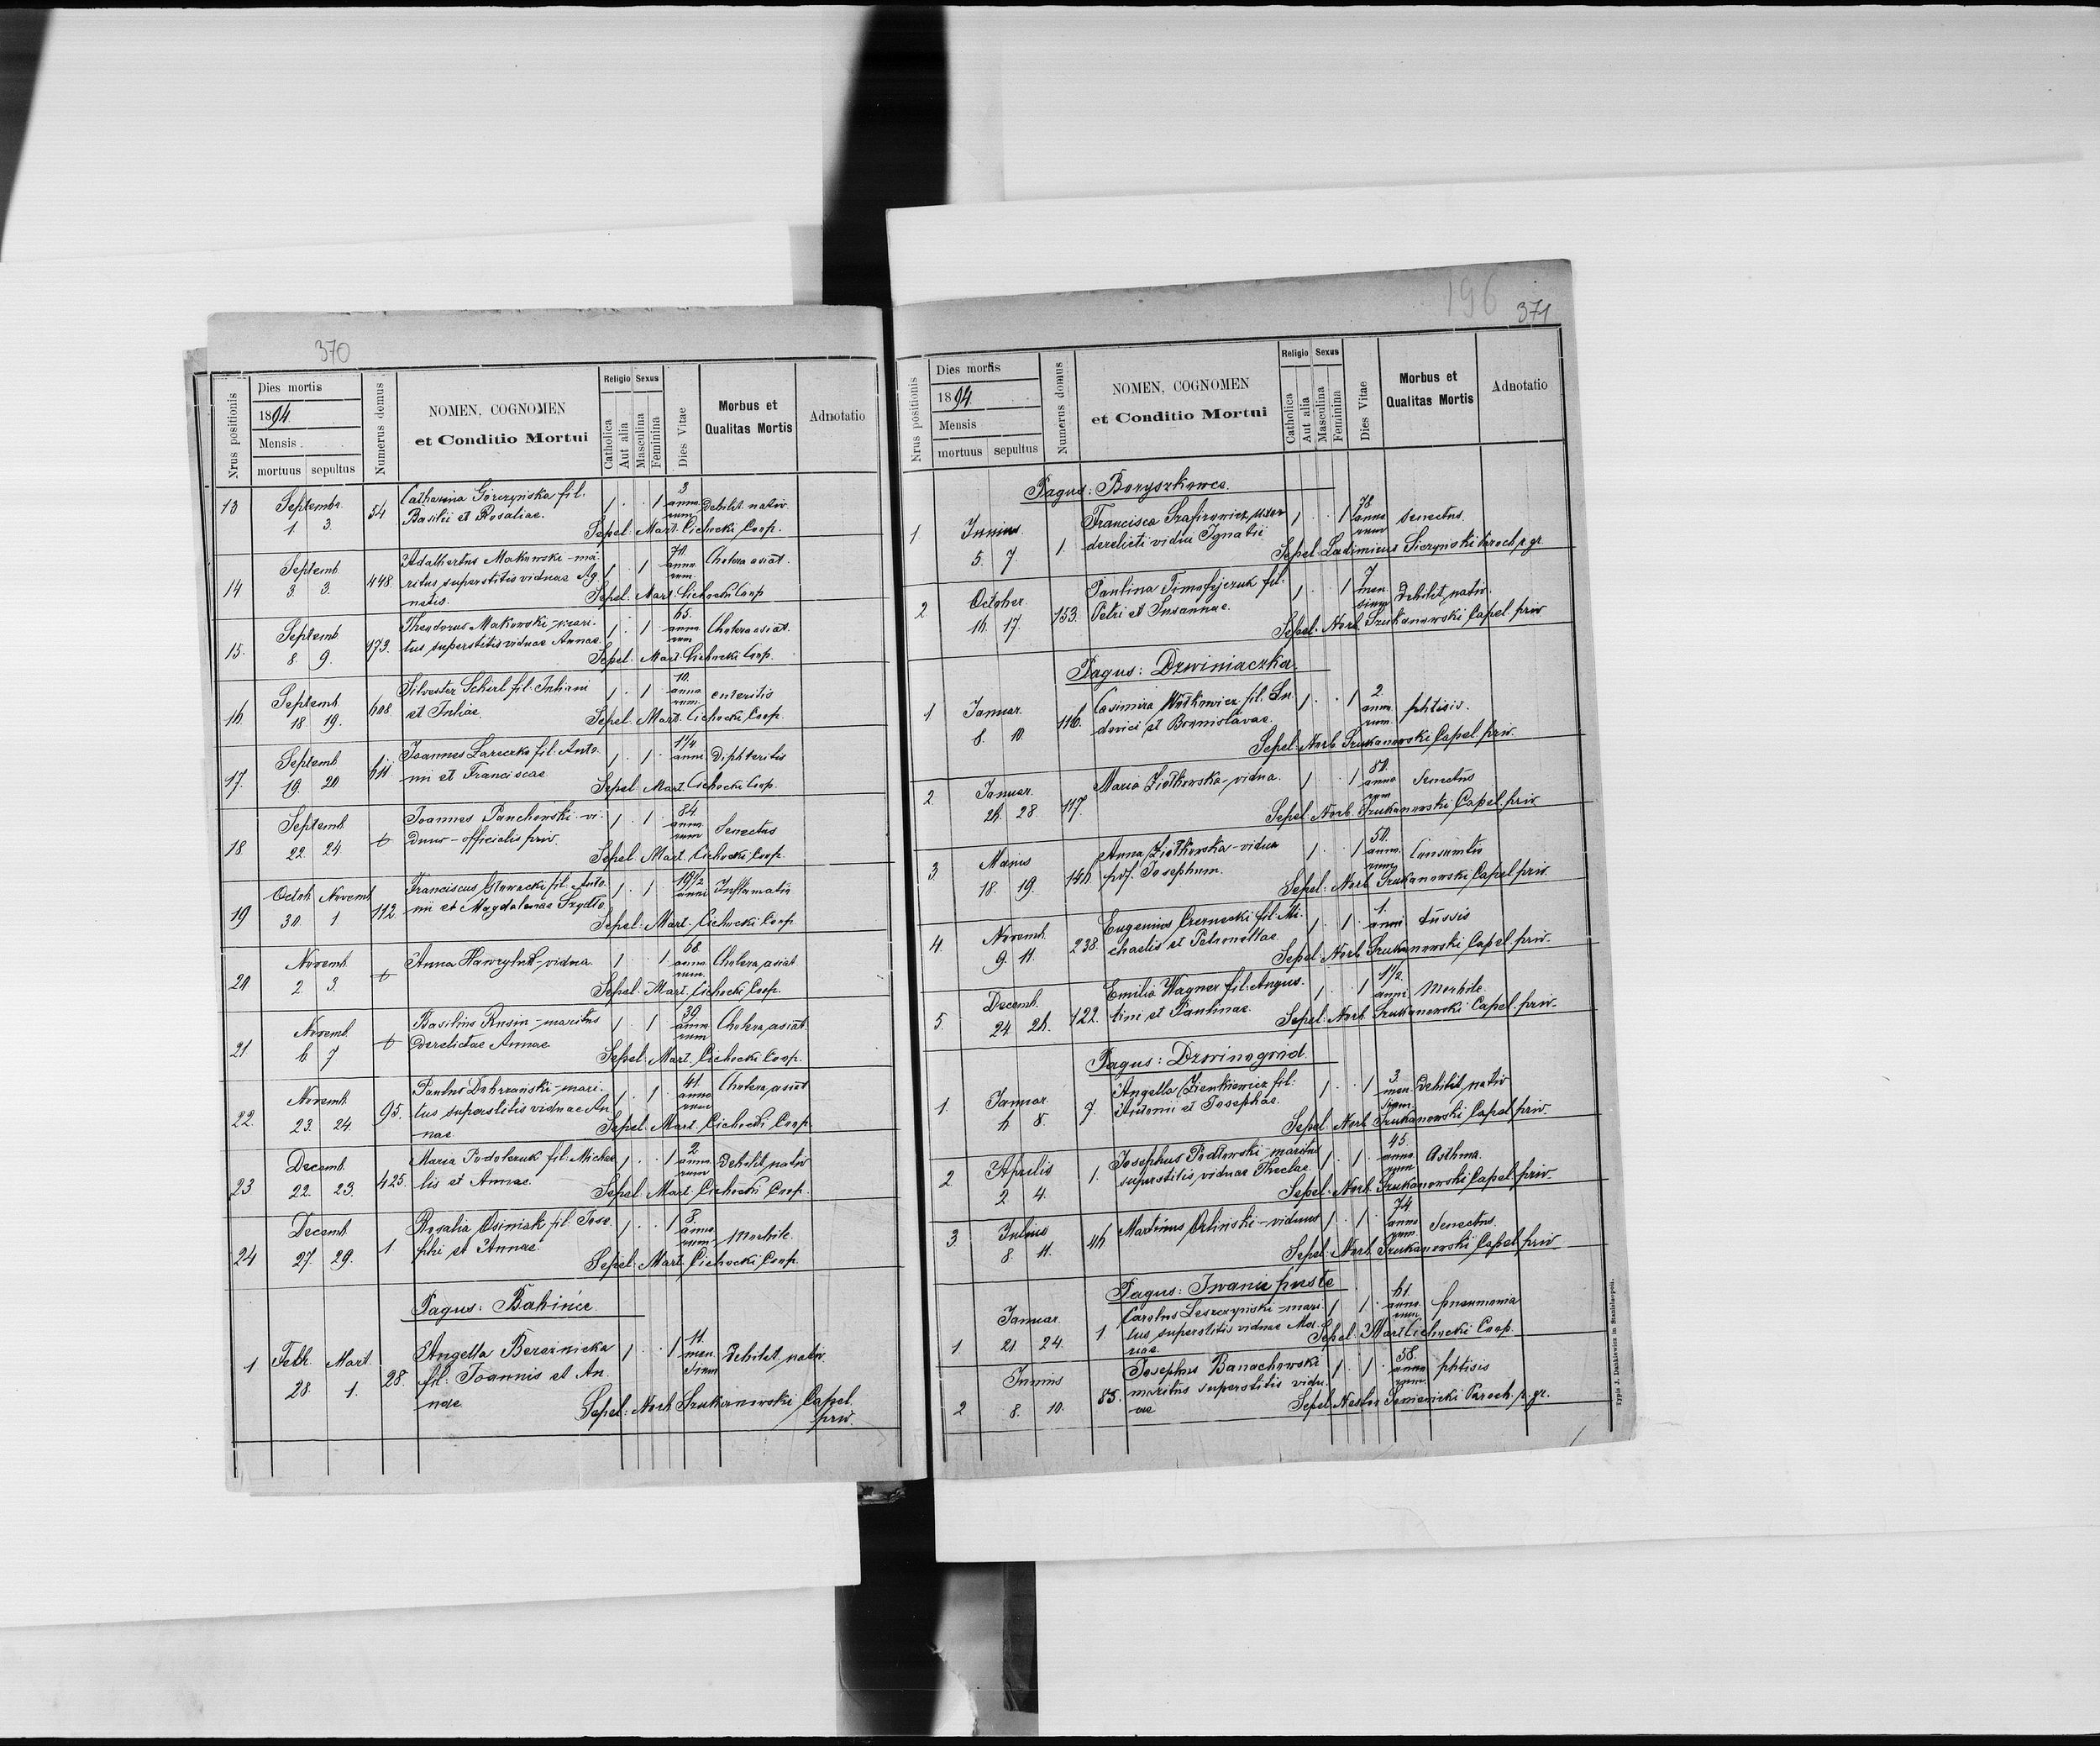 370
Nrus positionis
Dies mortis
1894
Mensis
mortuus sepultus
Numerus domus
NOMEN, COGNOMEN
et Conditio Mortui
Religio Sexus
Catholica
Aut alia
Masculina
Feminina
Dies Vitae
Morbus et
Qualitas Mortis
Adnotatio
13 Septembr. 1 3. 54 Catharina Górczyńska fil. 1 1 3 anno- Debilit. nativ.
Basilii et Rosaliae. rum
Sepel. Mart. Cichocki Coop.
14 Septemb. 3. 3. 448 Adalbertus Makowski - ma- 1 1 anno- Cholera asiat.
ritus superstitis viduae Ag- rum.
netis. Sepel. Mart. Cichocki Coop
15. Septemb. 8. 9. 173. Theodorus Makowski - mari- 1 1 65. anno- Cholera asiat.
tus superstitis viduae Annae. rum
Sepel. Mart. Cichocki Coop.
16 Septemb. 18 19. 608 Silvester Scherl fil. Juliani 1 1 10. anno- enteritis
et Juliae. rum.
Sepel. Mart. Cichocki Coop.
17. Septemb. 19. 20 611. Joannes Lareczko fil. Anto- 1 1 1 1/4 anni Diphteritis
nii et Franciscae
Sepel. Mart. Cichocki Coop.
18 Septemb. 22. 24 Joannes Panchowski - vi- 1 1 84. anno- Senectus
duus - officialis priv. rum
Sepel. Mart. Cichocki Coop.
19 Octob. Novemb. 30. 1. 112. Franciscus Głowacki fil. Anto- 1 1 anni Inflamatio
nii et Magdalenae Szydło
Sepel. Mart. Cichocki Coop.
20 Novemb. 2 3. Anna Hawryluk - vidua 1 1 68. anno- Cholera asiat
rum.
Sepel. Mart. Cichocki Coop.
21 Novemb. 6 7 Basilius Rusin - maritus 1 1 39. anno- Cholera asiat.
derelictae Annae rum
Sepel. Mart. Cichocki Coop.
22. Novemb. 23. 24 95. Paulus Dobrzański - mari- 1 1 41. anno- Cholera asiat
tus superstitis viduae An- rum
nae Sepel. Mart. Cichocki Coop.
23 Decemb. 22. 23. 425. Maria Podolczuk fil. Michae- 1 1 2 anno- Debilit. nativ
lis et Annae. rum
Sepel. Mart. Cichocki Coop.
24 Decemb. 27. 29. 1. Rosalia Osiniak fil. Jose- 1 1 anno- Morbile.
phi et Annae. rum
Sepel. Mart. Cichocki Coop.
Pagus: Babińce
1 Febr. Mart. 28. 1. 28. Angella Bereznicka 1 1 11. men- Debilit. nativ.
fil. Joannis et An- sium
nae
Sepel. Norb. Szukanowski Capel.
priv.
196
371
Nrus positionis
Dies mortis
1894
Mensis
mortuus sepultus
Numerus domus
NOMEN, COGNOMEN
et Conditio Mortui
Religio Sexus
Catholica
Aut alia
Masculina
Feminina
Dies Vitae
Morbus et
Qualitas Mortis
Adnotatio
Pagus: Boryszkowce.
1 Junius 5. 7. 1. Francisca Szafirowicz, uxor 1 1 78 anno- Senectus.
derelicti vidui Ignatii rum
Sepel. Ladimirus Sieczynski Paroch. r. gr.
2 October 16. 17. 153. Paulina Timofijczuk fil. 1 1 7 men- Debilit. nativ.
Petri et Susannae. sium
Sepel. Norb. Szukanowski Capel. priv
Pagus: Dzwiniaczka.
1 Januar. 8. 10 116. Casimira Wołkowicz fil. Lu- 1 1 2. anno- phtisis.
dovici et Bronislavae. rum.
Sepel. Norb. Szukanowski Capel. priv.
2 Januar. 26. 28 117. Maria Ziołkowska - vidua. 1 1 anno- Senectus
rum
Sepel. Norb. Szukanowski Capel. priv
3 Majus 18. 19. 146 Anna Ziołkowska - vidua 1 1 50. anno- Consumtio
post Josephum. rum
Sepel. Norb. Szukanowski Capel. priv.
4 Novemb. 9. 11. 238. Eugenius Czernecki fil. Mi- 1 1 1. anni tussis
chaelis et Petronellae
Sepel. Norb. Szukanowski Capel. priv.
5. Decemb. 24 26. 122. Emilia Wagner fil. Augus- 1 1 1 1/2. anni Morbile.
tini et Paulinae.
Sepel. Norb. Szukanowski Capel. priv.
Pagus: Dzwinogród.
1. Januar. 6 8. 7. Angella Zienkiewicz fil. 1 1 3. men- Debilit. nativ
Antonii et Josephae. sium.
Sepel. Norb. Szukanowski Capel. priv.
2 Aprilis 2 4. 1. Josephus Podlowski - maritus 1 1 45. anno- Asthma.
superstitis viduae Theclae rum
Sepel. Norb. Szukanowski Capel. priv.
3. Julius 8 11. 46 Martinus Orliński - viduus 1 1 74. anno- Senectus.
rum
Sepel. Norb. Szukanowski Capel. priv
Pagus: Iwanie puste
1 Januar. 21. 24. 1. Carolus Leszczyński - mari- 1 1 61. anno- pneumonia
tus superstitis viduae Ma- rum
riae Sepel. Mart. Cichocki Coop.
2 Junius 8. 10. 85. Josephus Banachowski 1 1 58. anno- phtisis
maritus superstitis vidu- rum
ae Sepel. Nestor Paroch. r. gr.
Typis J. Dankiewicz in Stanislopoli.